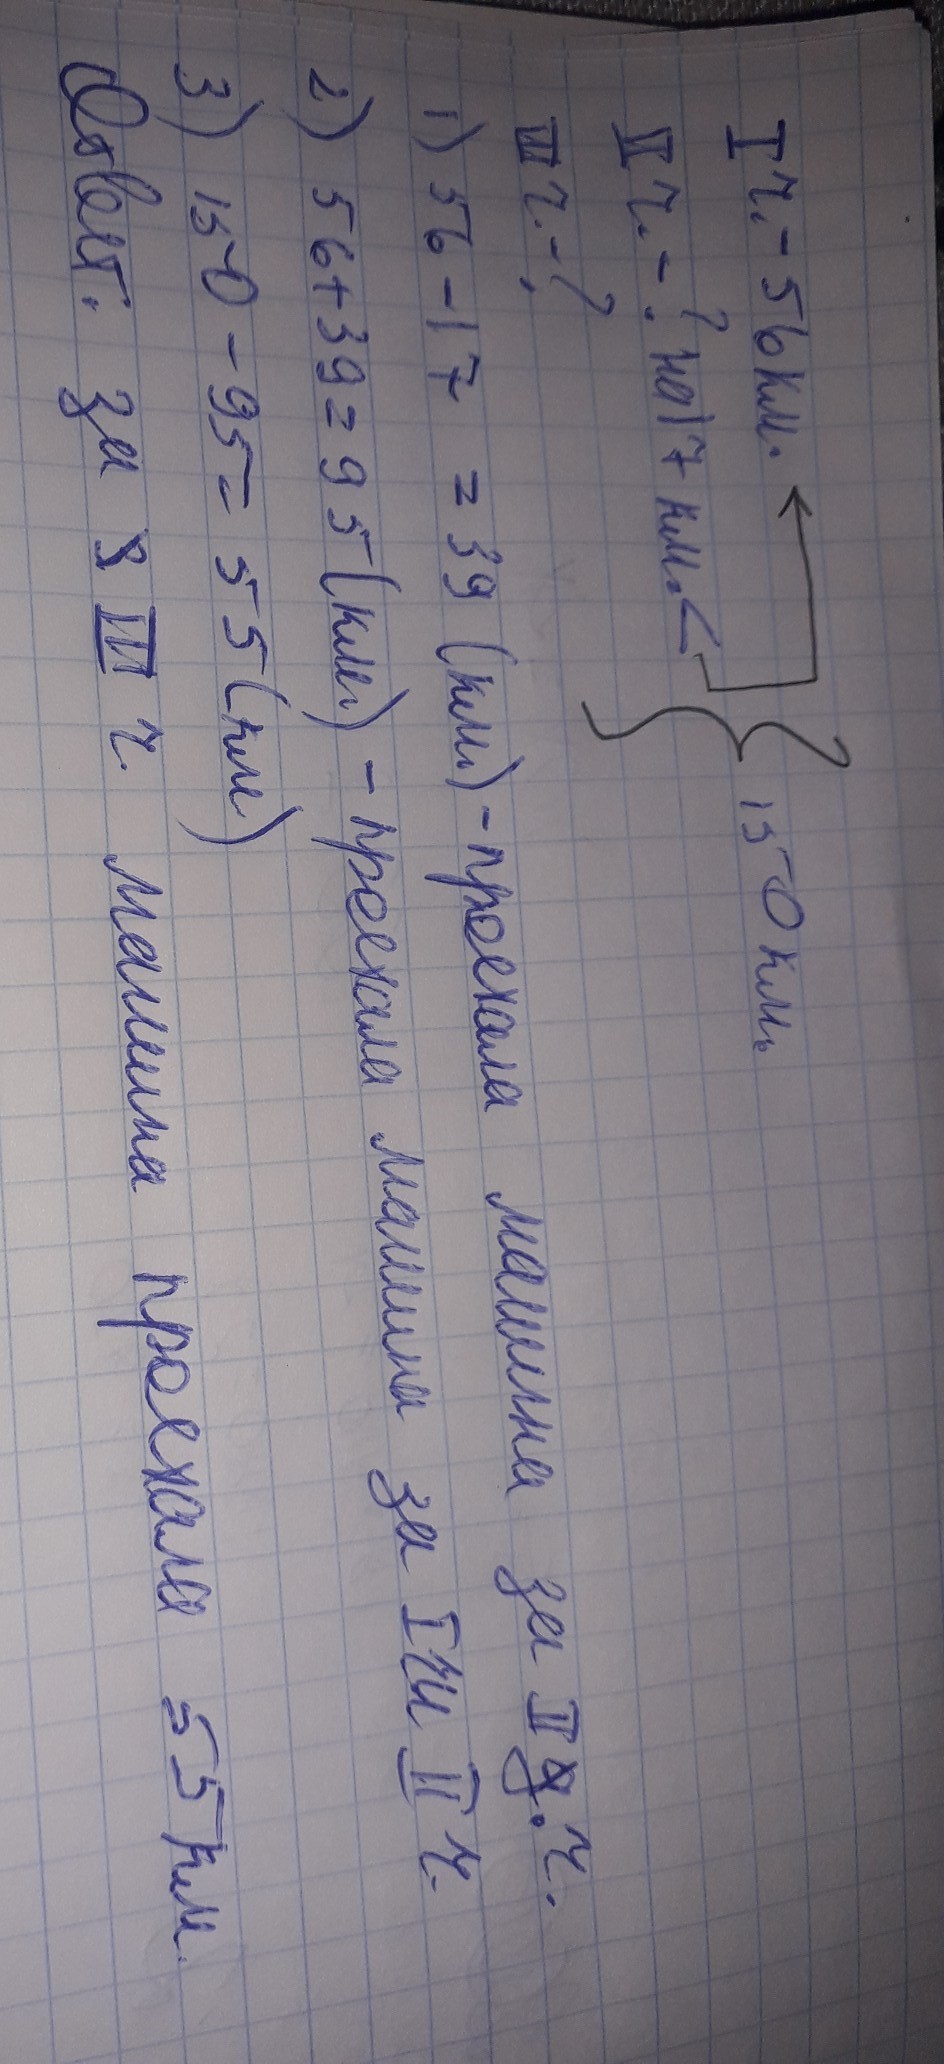 I ч. - 56 км.
II ч. - ? на 17 км. <
} 150 км.
III ч. - ?
1) 56 - 17 = 39 (км.) - проехала машина за II ч.
2) 56 + 39 = 95 (км.) - проехала машина за I ч и II ч.
3) 150 - 95 = 55 (км)
Ответ: за III ч. машина проехала 55 км.